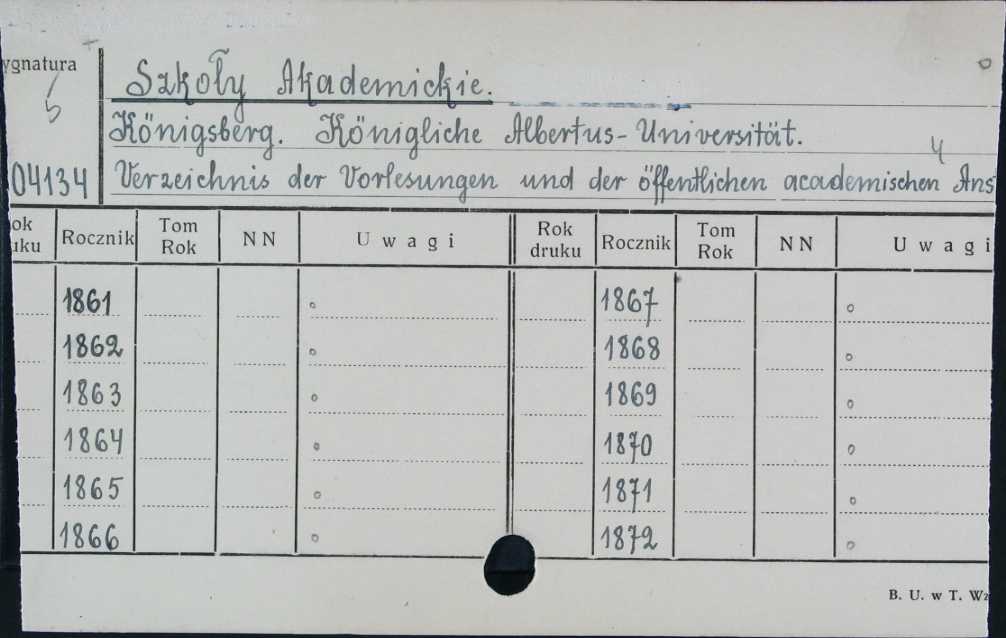 ygnatura
5
04134
Szkoły Akademickie.
Königsberg. Königliche Albertus-Universität.
4
Verzeichnis der Vorlesungen und der öffentlichen academischen Ans
ok uku Rocznik Tom Rok NN Uwagi Rok druku Rocznik Tom Rok NN Uwagi
1861 1867
1862 1868
1863 1869
1864 1870
1865 1871
1866 1872
B. U. w T. Wz